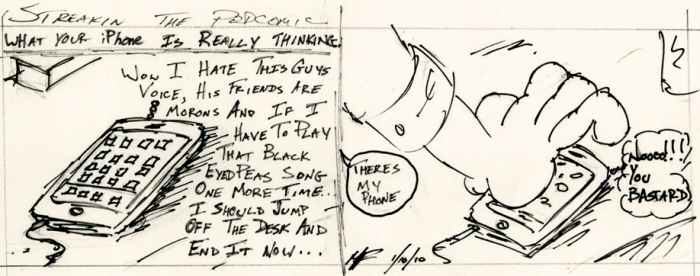 STREAKIN THE PODCOMIC
WHAT YOUR iPhone IS REALLY THINKING.
WOW I HATE THIS GUYS
VOICE, HIS FRIENDS ARE
MORONS AND IF I
HAVE TO PLAY
THAT BLACK
EYED PEAS SONG
ONE MORE TIME..
I SHOULD JUMP
OFF THE DESK AND
END IT NOW...
THERES
MY
PHONE
NOOOO!!!
YOU
BASTARD
1/6/10